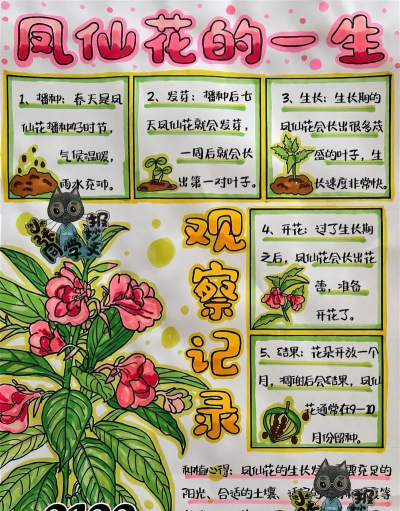 凤仙花的一生
1、播种：春天是凤
仙花播种的好时节，
气候温暖，
雨水充沛。
2、发芽：播种后七
天凤仙花就会发芽，
一周后就会长
出第一对叶子。
3、生长：生长期的
凤仙花会长出很多茂
盛的叶子，生
长速度非常快。
观察记录
4、开花：过了生长期
之后，凤仙花会长出花
蕾，准备
开花了。
5、结果：花朵开放一个
月，凋谢后会结果，凤仙
花通常在9-10
月份留种。
种植心得：凤仙花的生长发
充足的
阳光、合适的土壤、
等